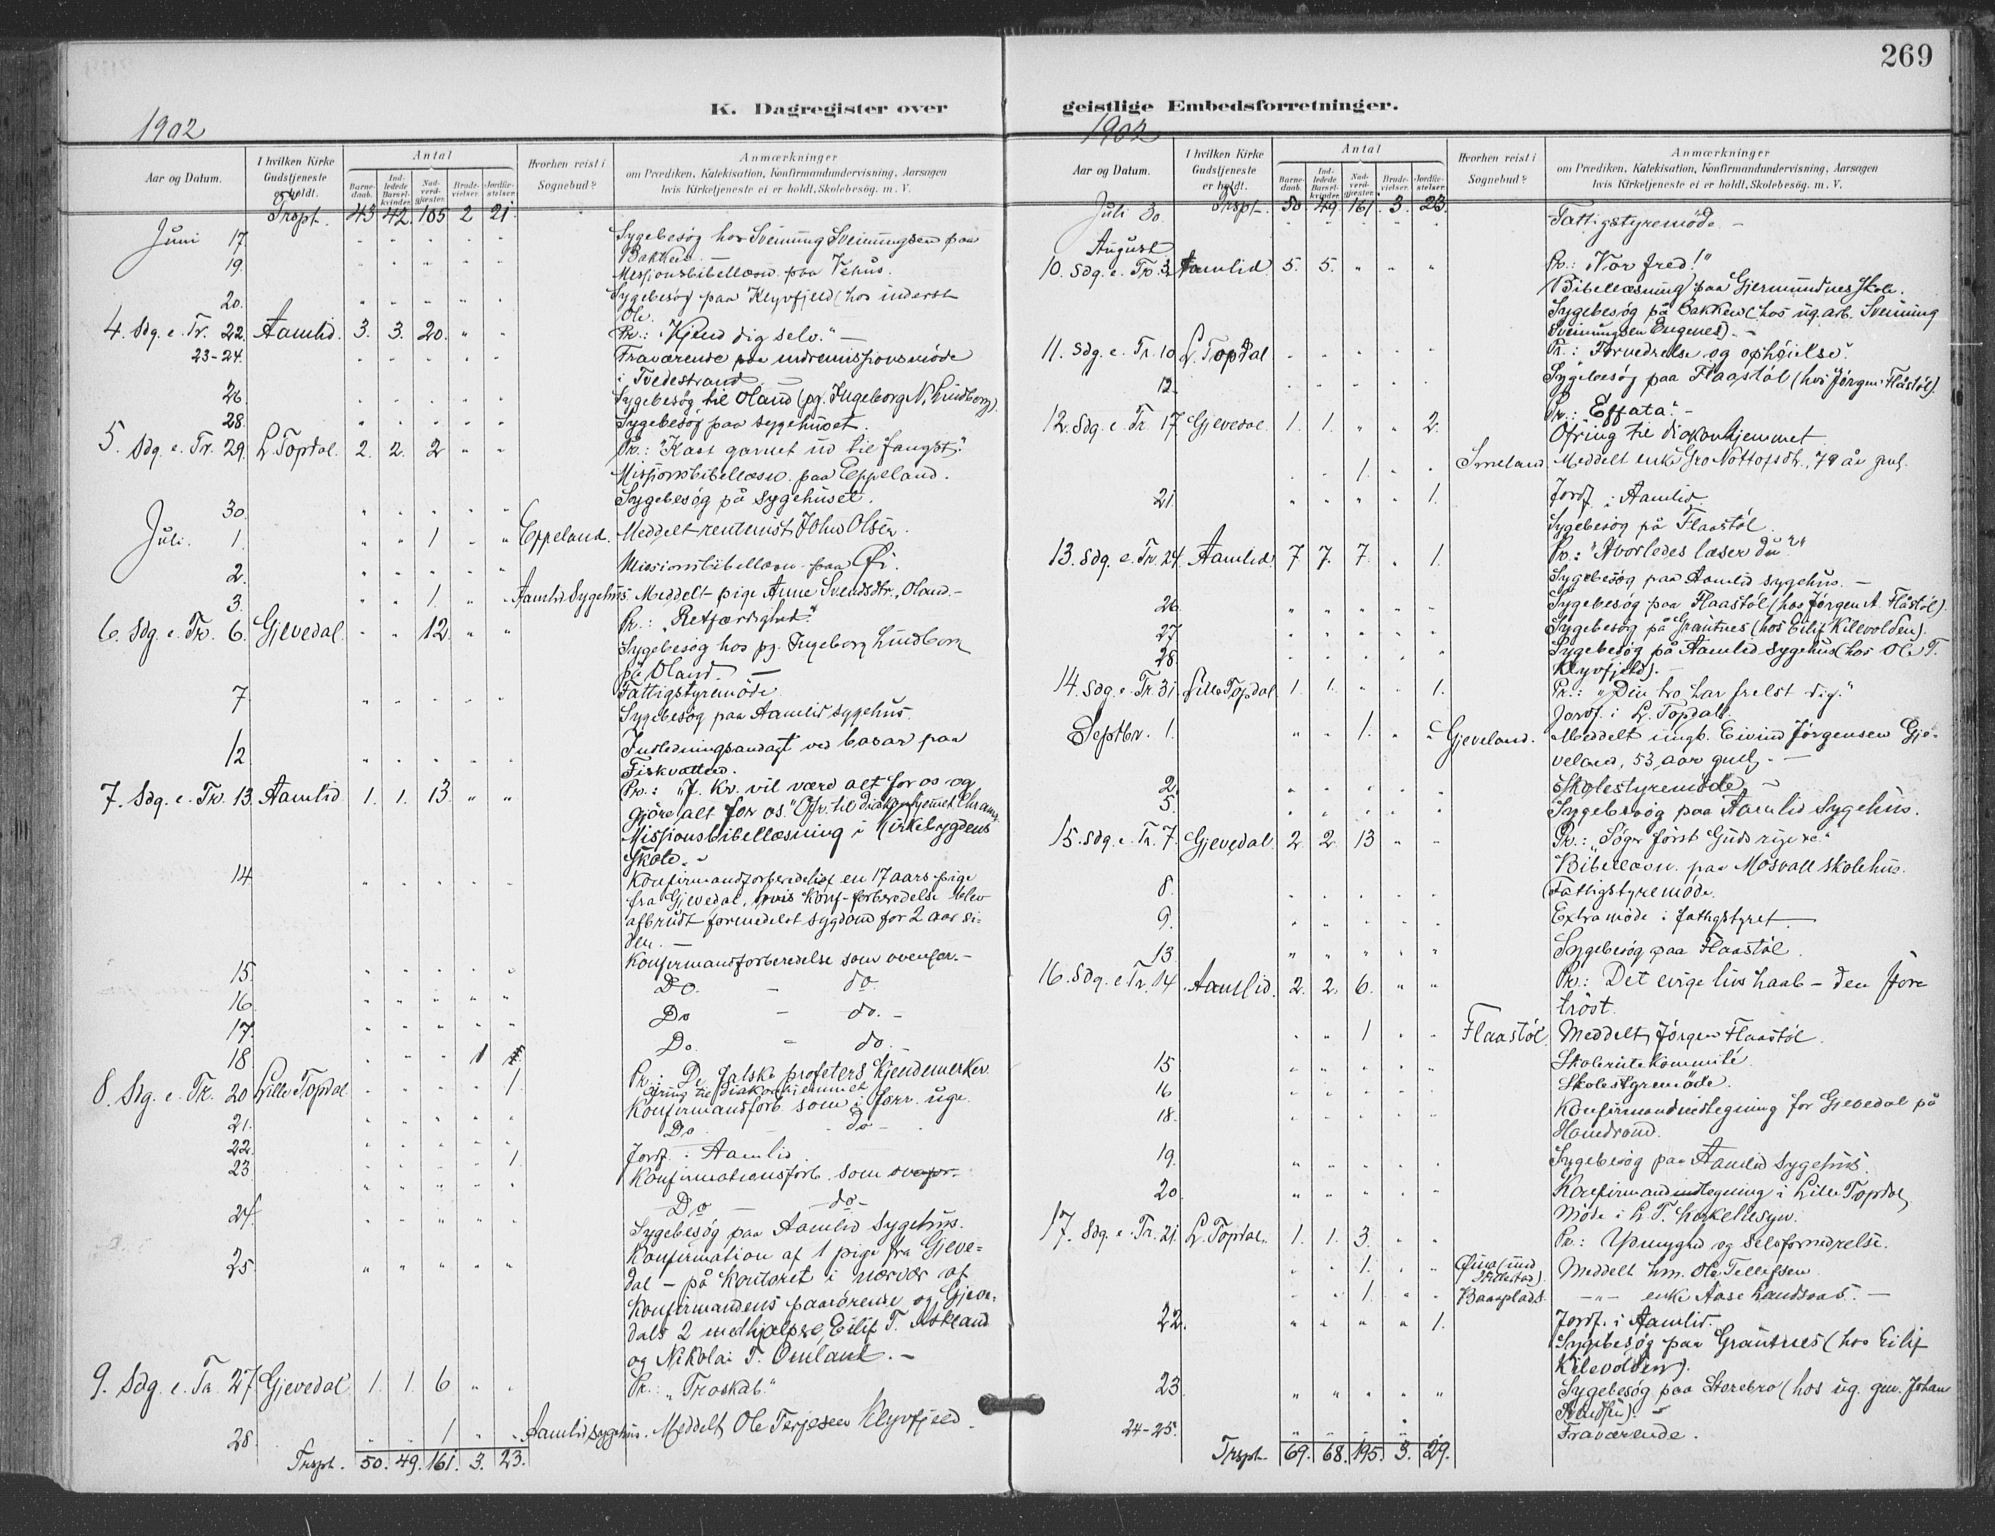 269
K. Dagregister over
geistlige Embedsforretninger.
1902
Aar og Datum.
I hvilken Kirke Gudstjeneste er holdt.
Antal
Barnedaab.
Indledede Barselkvinder.
Nadverdgjæster.
Brudevielser.
Jordfæstelser.
Hvorhen reist i Sognebud?
Anmærkninger
om Prædiken, Katekisation, Konfirmandundervisning, Aarsagen
hvis Kirketjeneste ei er holdt, Skolebesøg. m. V.
Trspt. 43 42 105 2 21
Juni 17. Sygebesøg hos Sveinung Sveinungsen paa
Bakken.
19. Missionsbibellæsn. paa Vehus.
20. Sygebesøg paa Klyvfjeld (hos inderst
Ole.
4. Sdg. e. Tr. 22. Aamlid 3. 3. 20. " " Pr.: "Kjend dig selv." —
23-24. Fraværende paa indremissionsmöde
i Tvedestrand
26. Sygebesøg til Oland (pg. Ingeborg N. Lindborg).
28. Sygebesøg paa sygehuset.
5. Sdg. e. Tr. 29. L. Topdal. 2. 2. 2 " " Pr.: "Kast garnet ud til fangst."
Missionsbibellæsn. paa Eppeland.
30. Sygebesøg på sygehuset.
Juli. 1. " " 1 " " Eppeland. Meddelt rentenist John Olsen.
2. Missionsbibellæsn. paa Øi.
3. " " 1. " " Aamlid Sygehus Meddelt pige Anne Svendsdtr., Oland. —
6. Sdg. e. Tr. 6. Gjevedal. " " 12. " " Pr.: "Retfærdighed."
Sygebesøg hos pg. Ingeborg Lindborg
på Oland. —
7 Fattigstyremöde
Sygebesøg paa Aamlid sygehus.
12. Indledningsandagt ved basar paa
Fiskvatten.
7. Sdg. e. Tr. 13. Aamlid. 1. 1. 13. " " Pr.: "J. Kr. vil være alt for os og
gjöre alt for os." Ofr. til diakonhjemmet
Missionsbibellæsning i Kirkebygdens
Skole. —
14. Konfirmandforberedelse en 17 aars pige
fra Gjevedal, hvis konf.-forberedelse blev
afbrudt formedelst sygdom for 2 aar si-
den. —
15. Konfirmansforberedelse som ovenfor. —
16. Do. — do.
17. Do — do. —
18 Do. — do. —
8. Sdg. e. Tr. 20 Lille Topdal 1. Pr.: De falske profeters Kjendemerker.
Ofring til diakonhjemmet
21. Konfirmansforb. som i forr. uge.
22. Do. — do —
23 1. Jordf. i Aamlid.
Konfirmationsforb. som ovenfor.
24. Do — do —
Sygebesøg paa Aamlid Sygehus.
25. Konfirmation af 1 pige fra Gjeve-
dal — på kontoret i nærvær af
konfirmandens paarörende og Gjeve-
dals 2 medhjælpere, Eilif T. Askland
og Nikolai T. Omland. —
9. Sdg. e. Tr. 27 Gjevedal 1. 1. 6 " " Pr.: "Troskab."
28. " " 1 " " Aamlid sygehus. Meddelt Ole Terjesen Klyvfjeld.
Trspt. 50. 49. 161. 3. 23.
1902
Aar og Datum.
I hvilken Kirke Gudstjeneste er holdt.
Antal
Barnedaab.
Indledede Barselkvinder.
Nadverdgjæster.
Brudevielser.
Jordfæstelser.
Hvorhen reist i Sognebud?
Anmærkninger
om Prædiken, Katekisation, Konfirmandundervisning, Aarsagen
hvis Kirketjeneste ei er holdt, Skolebesøg. m. V.
Trspt. 50 49 161. 3. 23.
Juli 30. Fattigstyremöde —
August
10. Sdg. e. Tr. 3. Aamlid 5. 5. " " " Pr.: "Vor fred!"
Bibellæsning paa Gjermundnes Skole.
Sygebesøg på Bakken (hos ug. arb. Sveinung
Sveinungsen Engenes). —
11. Sdg. e. Tr. 10 L. Topdal Pr.: "Fornedrelse og ophöielse."
12. Sygebesøg paa Flaastöl (hos Jørgen Flåstöl).
12. Sdg. e. Tr. 17 Gjevedal. 1. 1. " " 2. Pr.: "Effata." —
Ofring til diakonhjemmet.
1. Smeland. Meddelt enke Gro Nottofsdtr., 79 år gml.
21. 1. Jordf. i Aamlid.
Sygebesøg på Flaastöl.
13. Sdg. e. Tr. 24. Aamlid 7 7. 7. " 1. Pr.: "Hvorledes læser du?"
Sygebesøg paa Aamlid sygehus. —
26. Sygebesøg paa Flaastöl (hos Jørgen A. Flåstöl).
27. Sygebesøg på Grantnes (hos Eilif Kilevolden).
28. Sygebesøg på Aamlid sygehus (hos Ole T.
Klyvfjeld). —
14. Sdg. e. Tr. 31. Lille Topdal 1. 1. " " 1. Pr.: "Din tro har frelst dig."
Jordf. i L. Topdal.
Septbr. 1. " " 1. " " Gjeveland. Meddelt ungk. Eivind Jørgensen Gje-
veland, 53 aar gml. —
2. Skolestyremöde —
5. Sygebesøg paa Aamlid Sygehus.
15. Sdg. e. Tr. 7. Gjevedal 2. 2. 13 " " Pr.: "Söger först Guds rige &c."
Bibellæsn. paa Mosvall skolehus.
8. Fattigstyremöde.
9. Extra möde i fattigstyret —
13. Sygebesøg paa Flaastöl.
16. Sdg. e. Tr. 14. Aamlid. 2. 2. 6. " " Pr.: Det evige livs haab — den
tröst.
1 Flaastöl. Meddelt Jørgen Flaastöl.
15 Skolerutekommité.
16 Skolestyremöde.
18. Konfirmandindtegning for Gjevedal på
19. Sygebesøg paa Aamlid Sygehus.
20 Konfirmandindtegning i Lille Topdal
Möde i L. T. kirketilsyn.
17. Sdg. e. Tr. 21. L. Topdal. 1. 1. 3. " " Pr.: Ydmyghed og selvfornedrelse.
1. Meddelt hm. Ole Tellefsen
1. Baasplads. —"— enke Aase
22. 1. Jordf. i Aamlid.
Sygebesøg paa Grantnes (hos Eilif
Kilevolden).
23 Sygebesøg paa Storebro (hos ug. gm. Johan
24-25. Fraværende.
Trspt. 69. 68. 195. 3. 29.